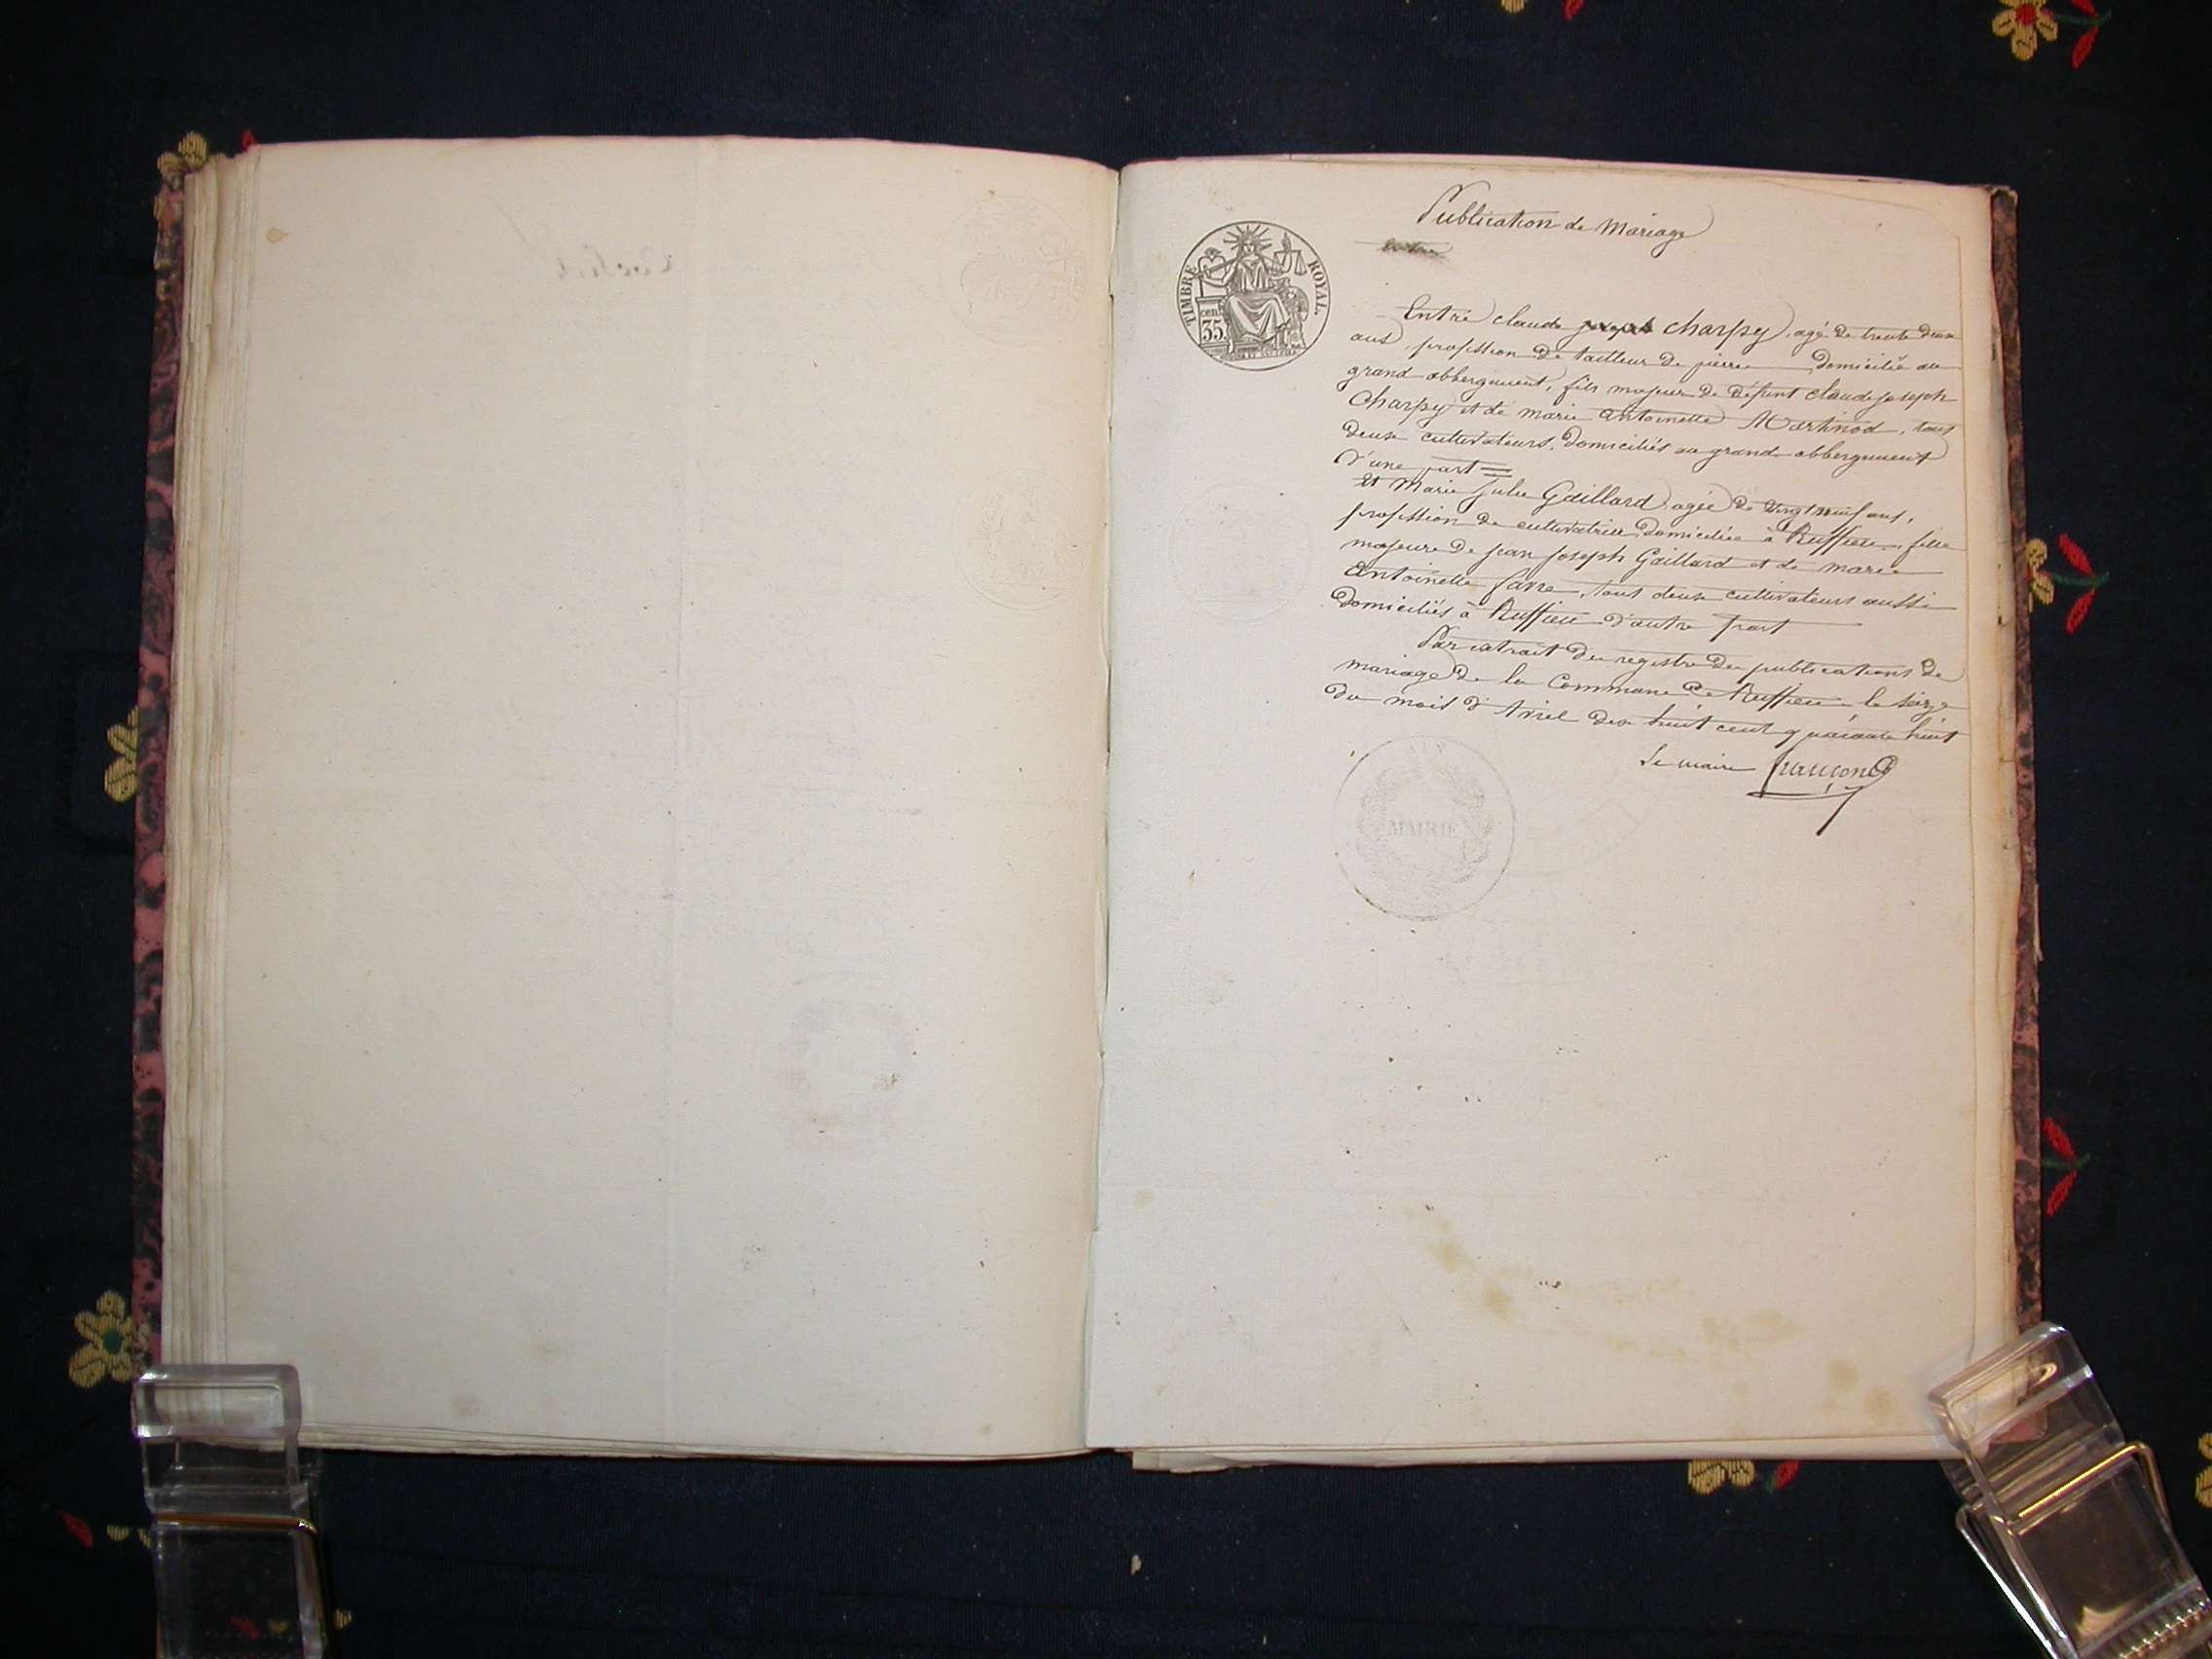 Publication de Mariage
TIMBRE ROYAL
cen.
35.
Entre claude joseph charpy, agé de trente deux
ans, profession de tailleur de pierre domicilié au
grand abbergument, fils majeur de défunt claude joseph
Charpy et de marie antoinette Martinod, tous
deux cultivateurs, domiciliés au grand abbergument
d'une part =
et Marie julie Gaillard, agée de vingt neuf ans,
profession de cultivatrice, domiciliée à Ruffieu, fille
majeure de jean joseph Gaillard et de marie
antoinette favre, tous deux cultivateurs aussi
domiciliés à Ruffieu d'autre part
Par extrait du registre des publications de
mariage de la Commune de Ruffieu, le seize
du mois d'Avril dix huit cent quarante huit
Le maire
AIN
MAIRIE